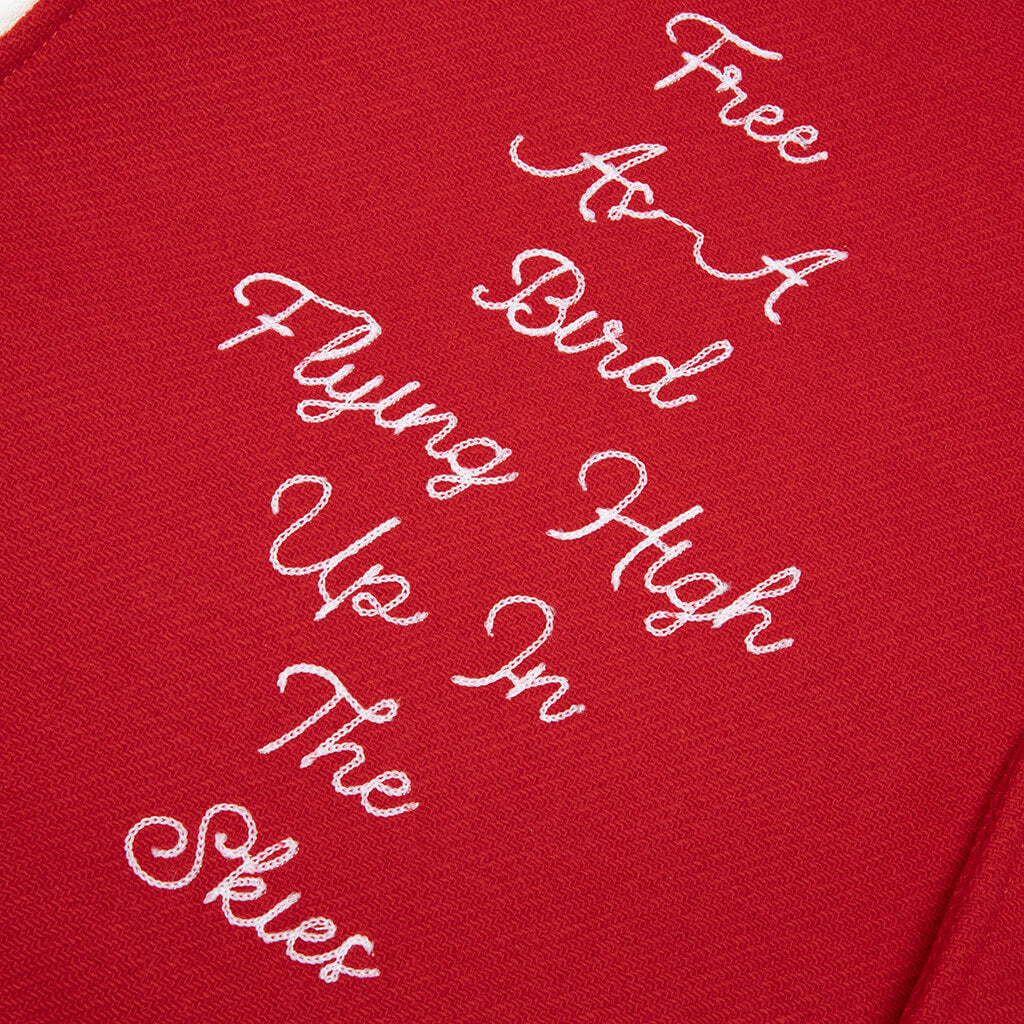 Free
As A
Bird
Flying High
Up In
The
Skies